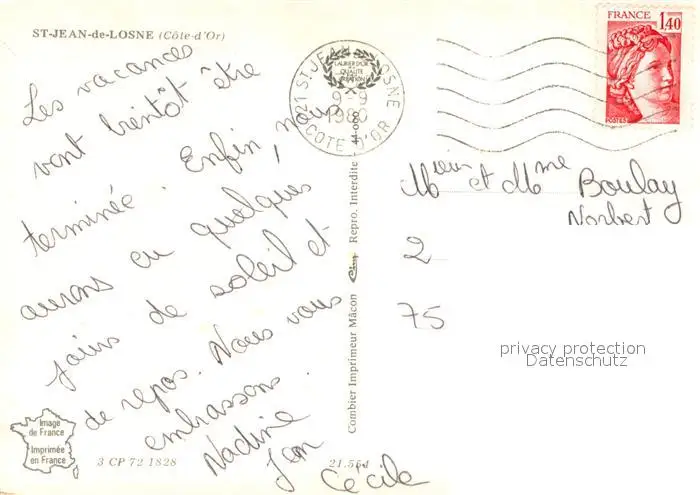 ST-JEAN-de-LOSNE (Côte-d'Or)
Les vacances
vont bientôt être
terminée. Enfin, nous
aurons eu quelques
jours de soleil et
de repos. Nous vous
embrassons.
Nadine
Jean
Cécile
Image
de France
Imprimée
en France
3 CP 72 1828
21.554
Combier Imprimeur Mâcon Cim Repro. Interdite - 44-000
21 ST JEAN LOSNE
9-9
1980
COTE D'OR
FRANCE 1,40
POSTES
Mieur et Mme Boulay
Norbert
2
75
privacy protection
Datenschutz